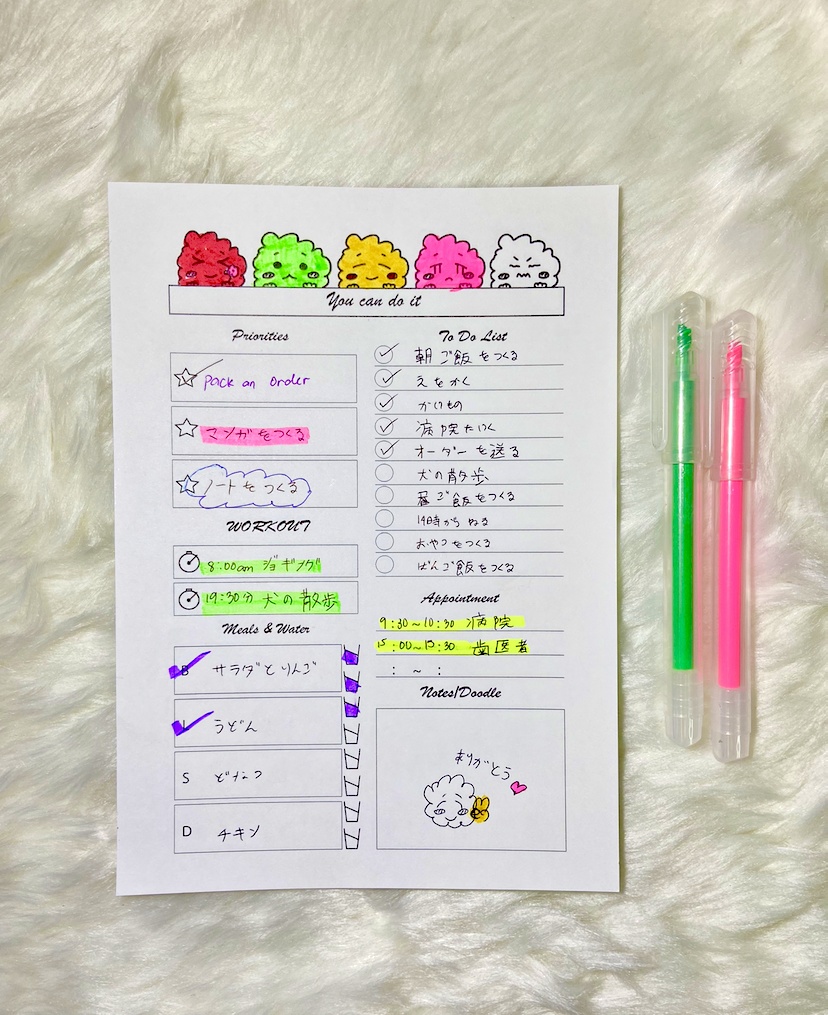 You can do it
Priorities
Pack an order
マンガをつくる
ノートをつくる
WORKOUT
8:00am ジョギング
19:30分 犬の散歩
Meals & Water
B サラダとりんご
うどん
S どーなつ
D チキン
To Do List
朝ご飯をつくる
えをかく
かいもの
病院たいく
オーダーを送る
犬の散歩
昼ご飯をつくる
14時から ねる
おやつをつくる
ばんご飯をつくる
Appointment
9:30~10:30 病院
15:00~15:30 歯医者
: ~ :
Notes/Doodle
ありがとう